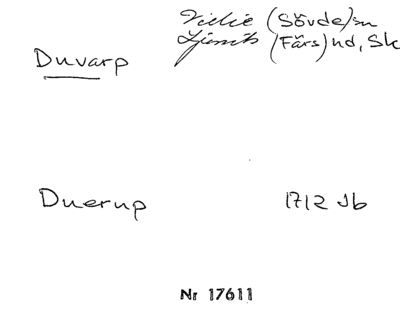 Vielie (Sövde) sn
Duvarp (Färs) hd, Sk
Duerup 1712 Jb
Nr 17611